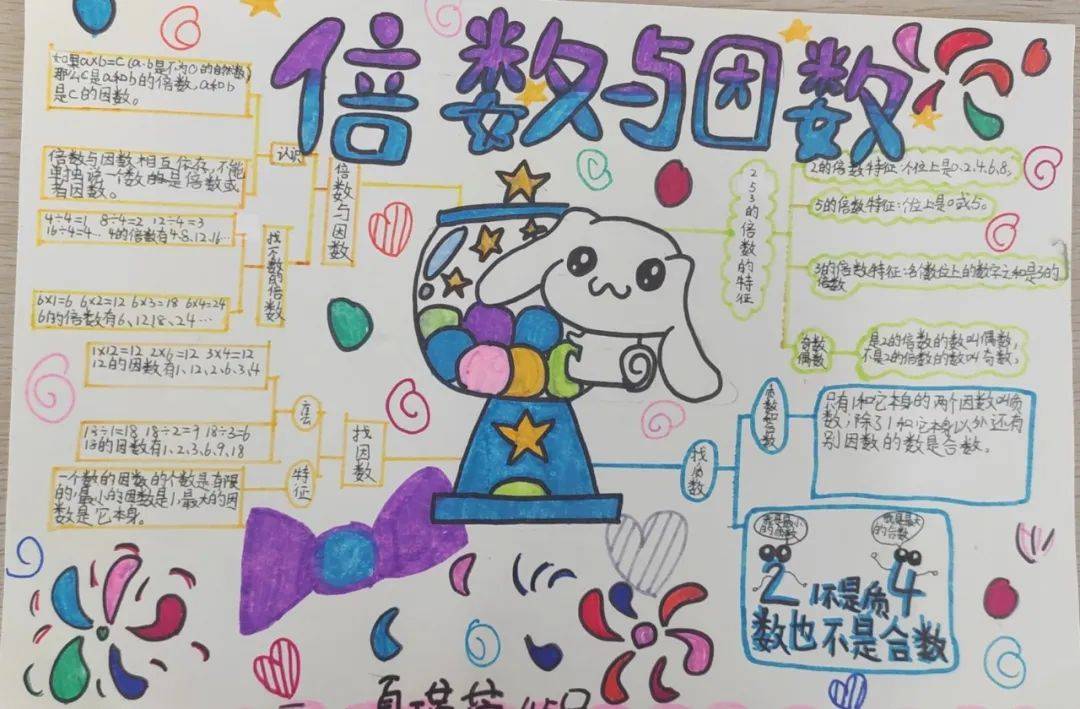 倍数与因数
如果a×b=c(a、b是不为0的自然数)
那么c是a和b的倍数,a和b
是c的因数。
认识
倍数与因数相互依存,不能
单独说一个数的是倍数或
者因数。
倍数与因数
4÷4=1 8÷4=2 12÷4=3
16÷4=4… 4的倍数有4.8.12.16…
找一个数的倍数
6×1=6 6×2=12 6×3=18 6×4=24
6的倍数有6、12、18、24…
1×12=12 2×6=12 3×4=12
12的因数有1、12、2、6、3、4
18÷1=18 18÷2=9 18÷3=6
18的因数有1、2、3、6、9、18
找因数
特征
一个数的因数的个数是有限
的,最小的因数是1,最大的因
数是它本身。
253的倍数的特征
2的倍数特征:个位上是0、2、4、6、8。
5的倍数特征:个位上是0或5。
3的倍数特征:各个数位上的数字之和是3的
倍数
奇数
偶数
是2的倍数的数叫偶数,
不是2的倍数的数叫奇数,
质数和合数
找质数
只有1和它本身的两个因数叫质
数,除了1和它本身以外还有
别因数的数是合数。
我是最小
的质数
我是最大
的合数
2 1不是质 4
数也不是合数